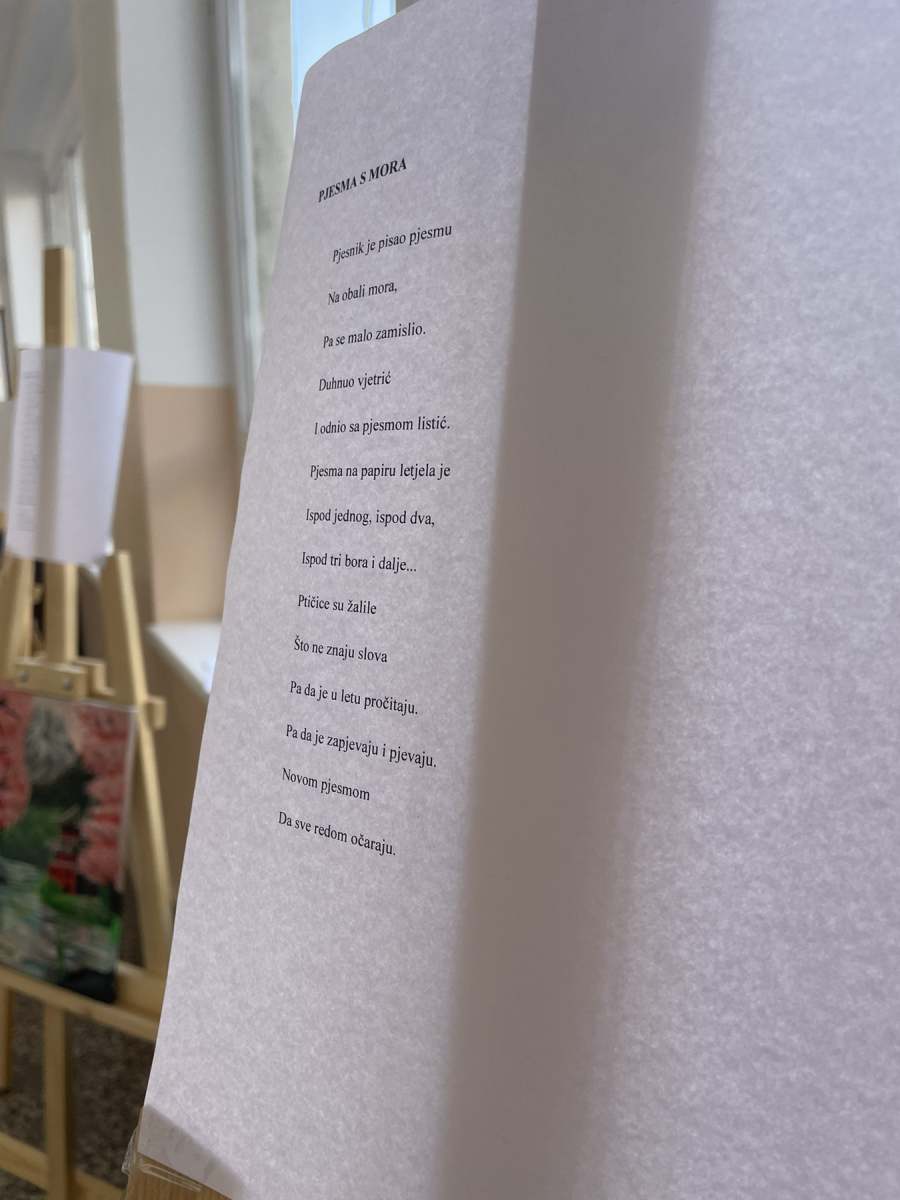 PJESMA S MORA
Pjesnik je pisao pjesmu
Na obali mora,
Pa se malo zamislio.
Duhnuo vjetrić
I odnio sa pjesmom listić.
Pjesma na papiru letjela je
Ispod jednog, ispod dva,
Ispod tri bora i dalje...
Ptičice su žalile
Što ne znaju slova
Pa da je u letu pročitaju.
Pa da je zapjevaju i pjevaju.
Novom pjesmom
Da sve redom očaraju.